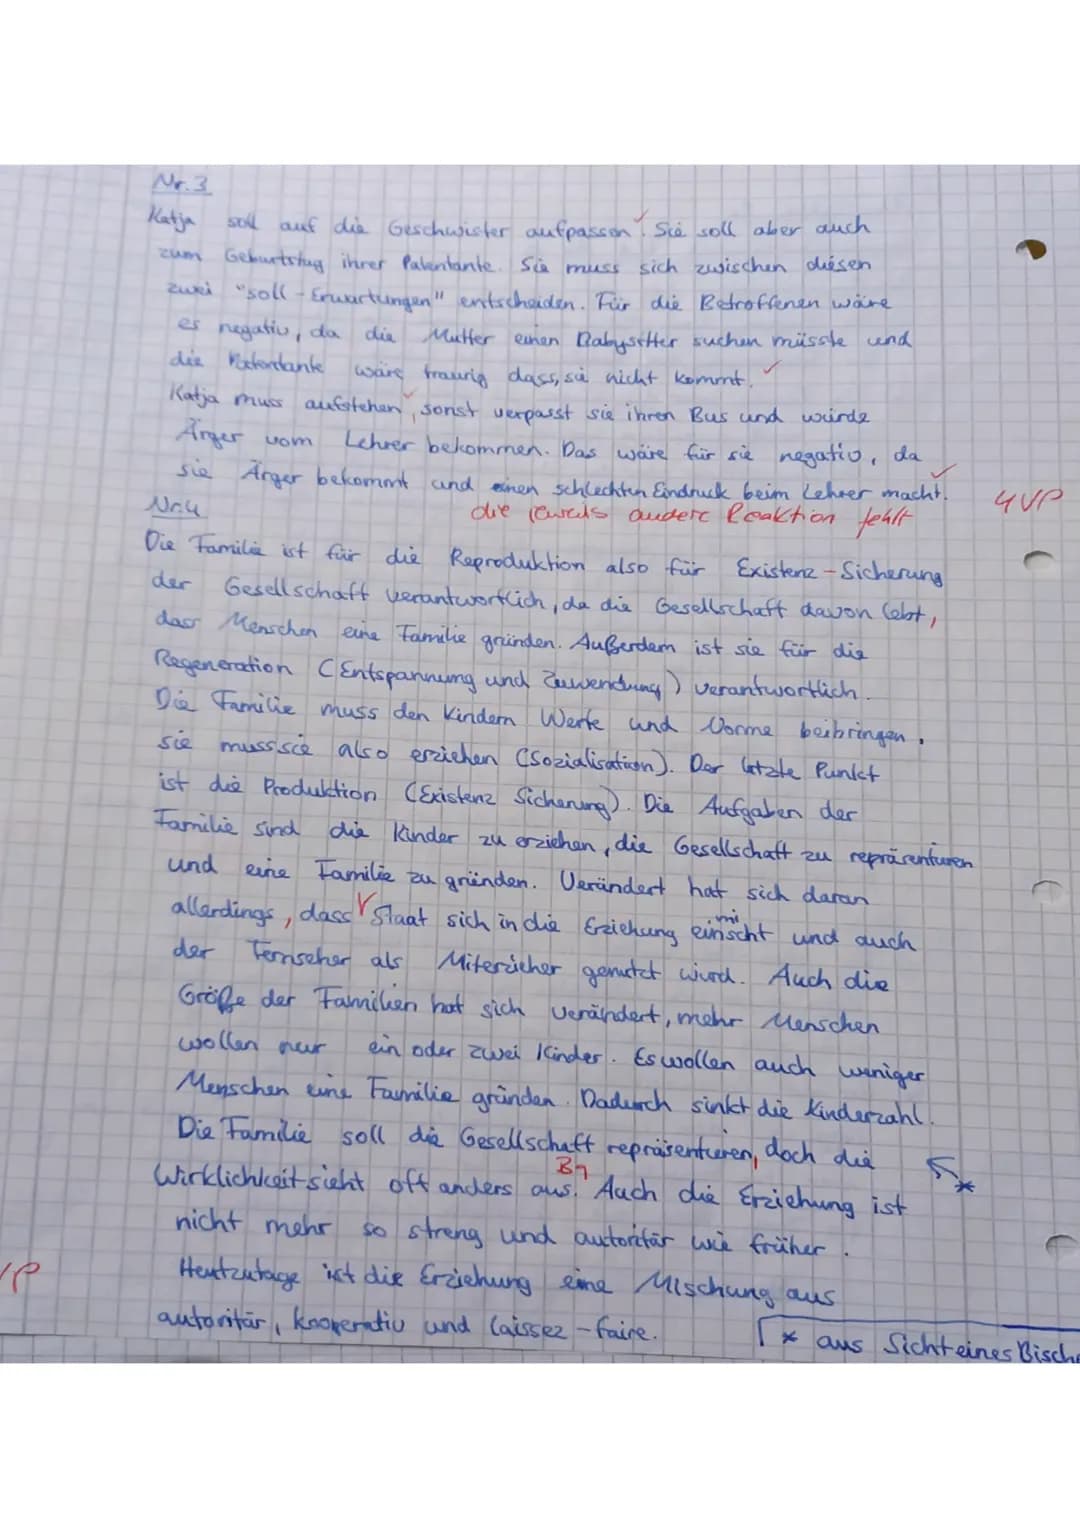 Nr.3
Katja soll auf die Geschwister aufpassen. Sie soll aber auch
zum Geburtstag ihrer Patentante. Sie muss sich zwischen diesen
zwei "soll-Erwartungen" entscheiden. Für die Betroffenen wäre
es negativ, da die Mutter einen Babysitter suchen müsste und
die Patentante wäre traurig dass, sie nicht kommt.
Katja muss aufstehen, sonst verpasst sie ihren Bus und würde
Ärger vom Lehrer bekommen. Das wäre für sie negativ, da
sie Ärger bekommt und einen schlechten Eindruck beim Lehrer macht.
4VP
die jeweils andere Reaktion fehlt
Nr.4
Die Familie ist für die Reproduktion also für Existenz-Sicherung
der Gesellschaft verantwortlich, da die Gesellschaft davon lebt,
dass Menschen eine Familie gründen. Außerdem ist sie für die
Regeneration (Entspannung und Zuwendung) verantwortlich.
Die Familie muss den Kindern Werte und Norme beibringen,
sie muss sie also erziehen (Sozialisation). Der letzte Punkt
ist die Produktion (Existenz Sicherung). Die Aufgaben der
Familie sind die Kinder zu erziehen, die Gesellschaft zu repräsentieren
und eine Familie zu gründen. Verändert hat sich daran
allerdings, dass Staat sich in die Erziehung einmischt und auch
der Fernseher als Miterzieher genutzt wird. Auch die
Größe der Familien hat sich verändert, mehr Menschen
wollen nur ein oder zwei Kinder. Es wollen auch weniger
Menschen eine Familie gründen. Dadurch sinkt die Kinderzahl.
Die Familie soll die Gesellschaft repräsentieren, doch die *
Wirklichkeit sieht oft anders aus. Auch die Erziehung ist
nicht mehr so streng und autoritär wie früher.
VP
Heutzutage ist die Erziehung eine Mischung aus
autoritär, kooperativ und laissez-faire.
* aus Sicht eines Bisch